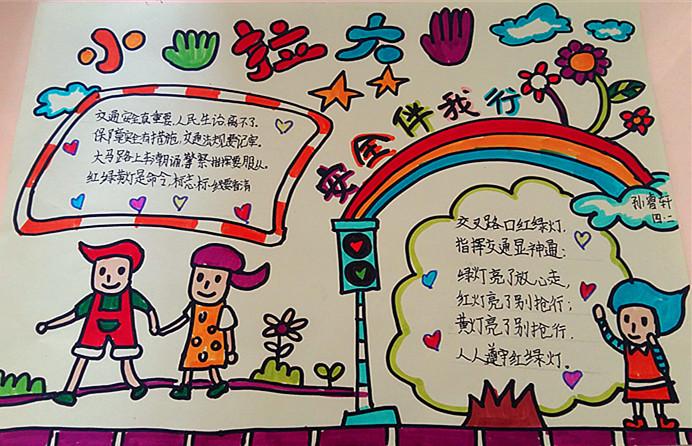 小拉大
安全伴我行
孙睿轩
四.二
交通安全真重要,人民生活离不了.
保障安全有措施,交通法规要记牢.
大马路上书朗诵,警察指挥要服从.
红绿黄灯是命令,标志.标线要看清
交叉路口红绿灯.
指挥交通显神通:
绿灯亮了放心走,
红灯亮了别抢行;
黄灯亮了别抢行.
人人遵守红绿灯.